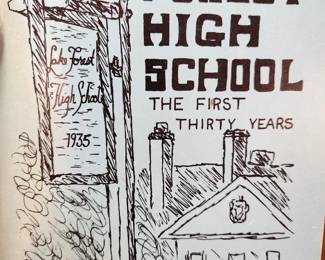 HIGH
SCHOOL
THE FIRST
THIRTY YEARS
Lake Forest
High School
1935